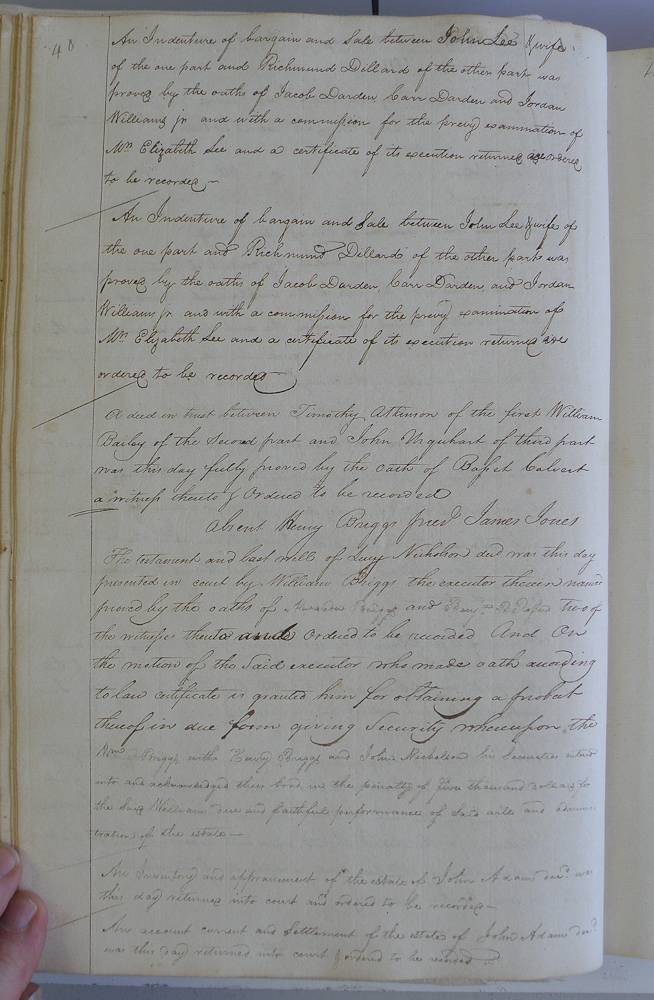 40
An Indenture of bargain and Sale between John Lee & wife
of the one part and Richmund Dillard of the other part was
proved by the oaths of Jacob Darden, Carr Darden and Jordan
Williams jr and with a commission for the privy examination of
Mrs Elizabeth Lee and a certificate of its execution returned are ordered
to be recorded —
An Indenture of bargain and Sale between John Lee & wife of
the one part and Richmund Dillard of the other part was
proved by the oaths of Jacob Darden, Carr Darden, and Jordan
Williams jr and with a commission for the privy examination of
Mrs Elizabeth Lee and a certificate of its execution returned are
ordered to be recorded
A deed in trust between Timothy Atkinson of the first William
Bailey of the Second part and John Urquhart of third part
was this day fully proved by the Oath of Basset Calvert
a witness thereto & Ordered to be recorded
absent Henry Briggs pres.t James Jones
The testament and last will of Lucy Nicholson decd was this day
presented in court by William Briggs the executor therein named
proved by the oaths of Briggs and two of
the witness thereto and Ordered to be recorded And On
the motion of the Said executor who made oath according
to law certificate is granted him for obtaining a probat
thereof in due form giving Security whereupon the
Briggs with Henry Briggs and John Nicholson his Securities entered
into and acknowledged their bond in the penalty of five thousand dollars for
the Said William due and faithful performance of Said will and adminis-
tration of the estate —
An Inventory and appraisment of the estate of John Adams decd. was
this day returned into court and ordered to be recorded —
An account current and Settlement of the estate of John Adams decd.
was this day returned into court & ordered to be recorded —